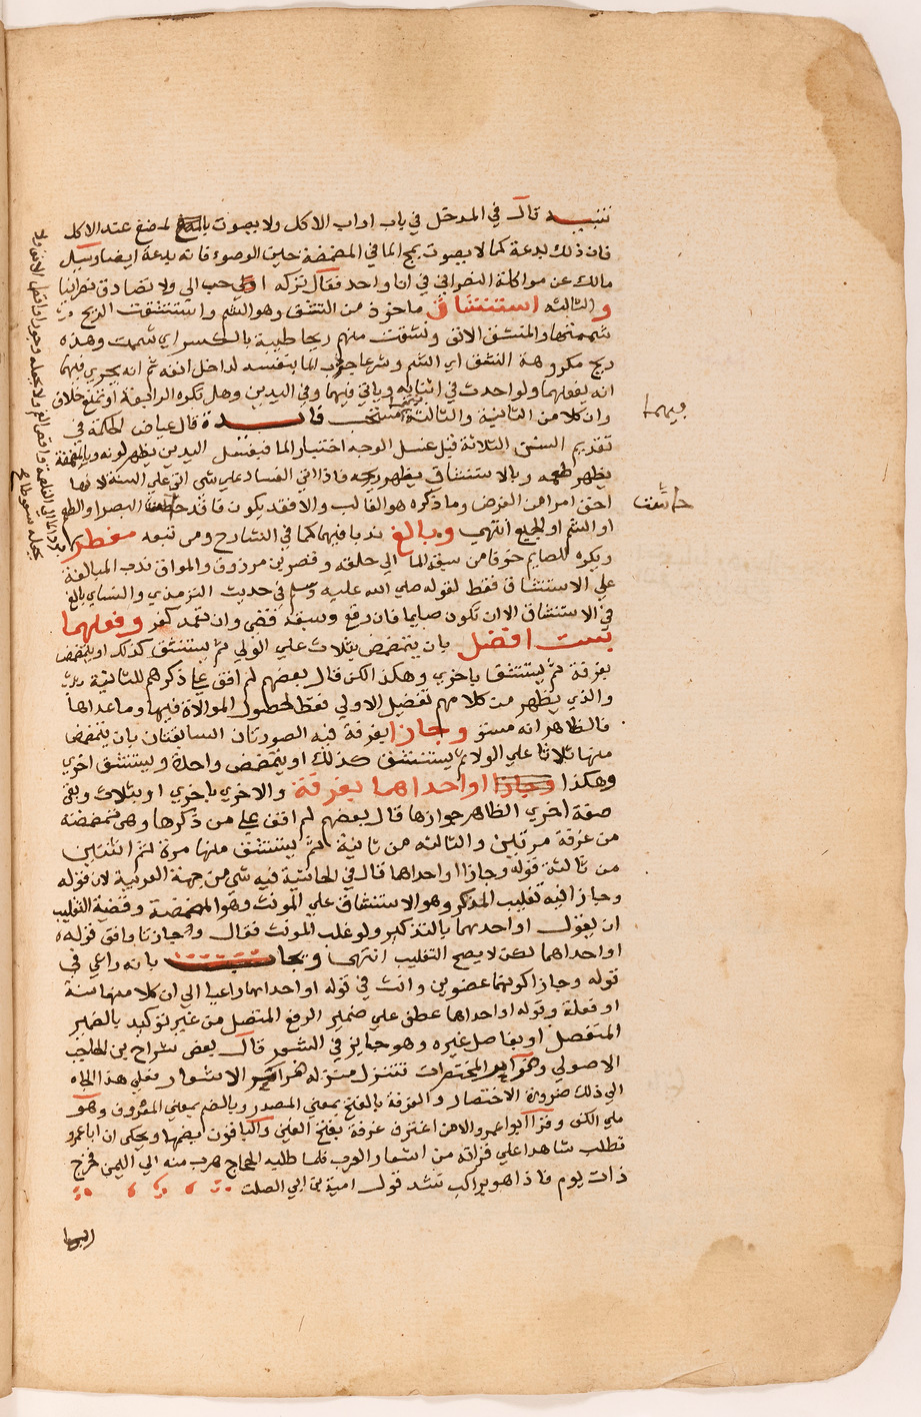 تنبيه قال في المدخل في باب اداب الاكل ولا يصوت بالمضغ لمضغ عند الاكل
فان ذلك بدعة كما لا يصوت بمج الما في المضمضة حين الوضوء فانه بدعة ايضا وسيل
مالك عن مواكلة النصراني في انا واحد فقال تركه احب الي ولا تصادق نصرانيا
والثالثه استنشاق ماخوذ من التنشق وهو الشم واستنشقت الريح
شممتها والمنتشق الانف ونشقت منهم ريحا طيبة بالكسر اي شممت وهذه
ريح مكروهة النشق اي الشم وشرعا جذب الما بنفسه لداخل انفه ثم انه يجري فيهما
انه يفعلهما ولو احدث في اثنائه وياتي فيهما وفي اليدين وهل تكره الرابعة او تمنع خلاف
وان كلا من الثانية والثالثة مستحب فائدة قال عياض الحكمة في
تقديم السنن الثلاثة قبل غسل الوجه اختبار الما فبغسل اليدين يظهر لونه وبالمضمضة
يظهر طعمه وبالاستنشاق يظهر ريحه فاذا القي الفساد على شي اتي علي السنة لانها
اخف امرا من الفرض وما ذكره هو الغالب والا فقد يكون فاقد حاسة البصر او الطعم
او الشم او الجميع انتهى وبالغ ندبا فيهما كما في الشارح ومن تبعه مفطر
ويكره للصايم خوفا من سبقه الما الي حلقه وقصر بن مرزوق والمواق ندب المبالغة
علي الاستنشاق فقط لقوله صلي الله عليه وسلم في حديث الترمذي والنساي بالغ
في الاستنشاق الا ان تكون صايما فان وقع وسبقه قضي وان تعمد كفر وفعلهما
بست افضل بان يتمضمض بثلاث علي الولي ثم يستنشق كذلك او يتمضمض
بغرفة ثم يستنشق باخري وهكذا لكن قال بعضهم لم اقف علي ذكرهم للثانية
والذي يظهر من كلامهم تفضيل الاولي فقط لحصول الموالاة فيها وما عداها
فالظاهر انه مستو وجازا بغرفة فيه الصورتان السابقتان بان يتمضمض
منها ثلاثا علي الولا ثم يستنشق كذلك او يتمضمض واحدة ويستنشق اخري
وهكذا او احداهما بغرفة والاخري باخري او بثلاث وبقي
صفة اخري الظاهر جوازها قال بعضهم لم اقف علي من ذكرها وهي مضمضة
من غرفة مرتين والثالثه من ثانية ثم يستنشق منها مرة ثم اثنتين
من ثالثة قوله وجازا او احداهما قال في الحاشية فيه شي من جهة العربية لان قوله
وجازا فيه تغليب المذكر وهو الاستنشاق علي المونث وهو المضمضة وقضية التغليب
ان يقول او احدهما بالتذكير ولو غلب المونث فقال وجازتا وافق قوله
او احداهما لكن لا يصح التغليب انتهى ويجاب بانه راعي في
قوله وجازا كونهما عضوين وانث في قوله او احداهما راعيا الي ان كلا منهما سنة
او فعلة وقوله او احداهما عطف علي ضمير الرفع المتصل من غير توكيد بالضمير
المنفصل او بفاصل غيره وهو جايز في الشعر قال بعض شراح بن الحاجب
الاصولي وهذه المختصرات تتنزل منزلة الاشعار بهذا
الي ذلك ضرورة الاختصار والغرفة بالفتح بمعني المصدر وبالضم بمعني المغروف وهو
ملي الكف وقرا ابو عمرو الا من اغترف غرفة بفتح الغين والباقون بضمها ويحكي ان ابا عمرو
تطلب شاهدا علي قراته من اشعار العرب فلما طلبه الحجاج هرب منه الي اليمن فخرج
ذات يوم فاذا هو براكب ينشد قول امية بن ابي الصلت
فيهما
حاشت